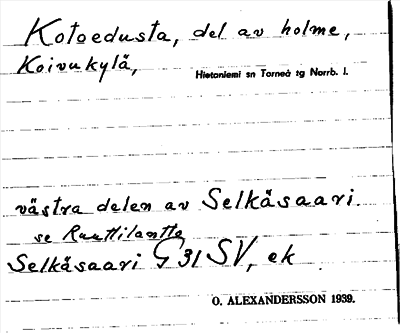 Kotoedusta, del av holme,
Koivukylä, Hietaniemi sn Torneå tg Norrb. l.
västra delen av Selkäsaari.
se Ruuttilantto
Selkäsaari G 31 SV, ek
O. ALEXANDERSSON 1939.